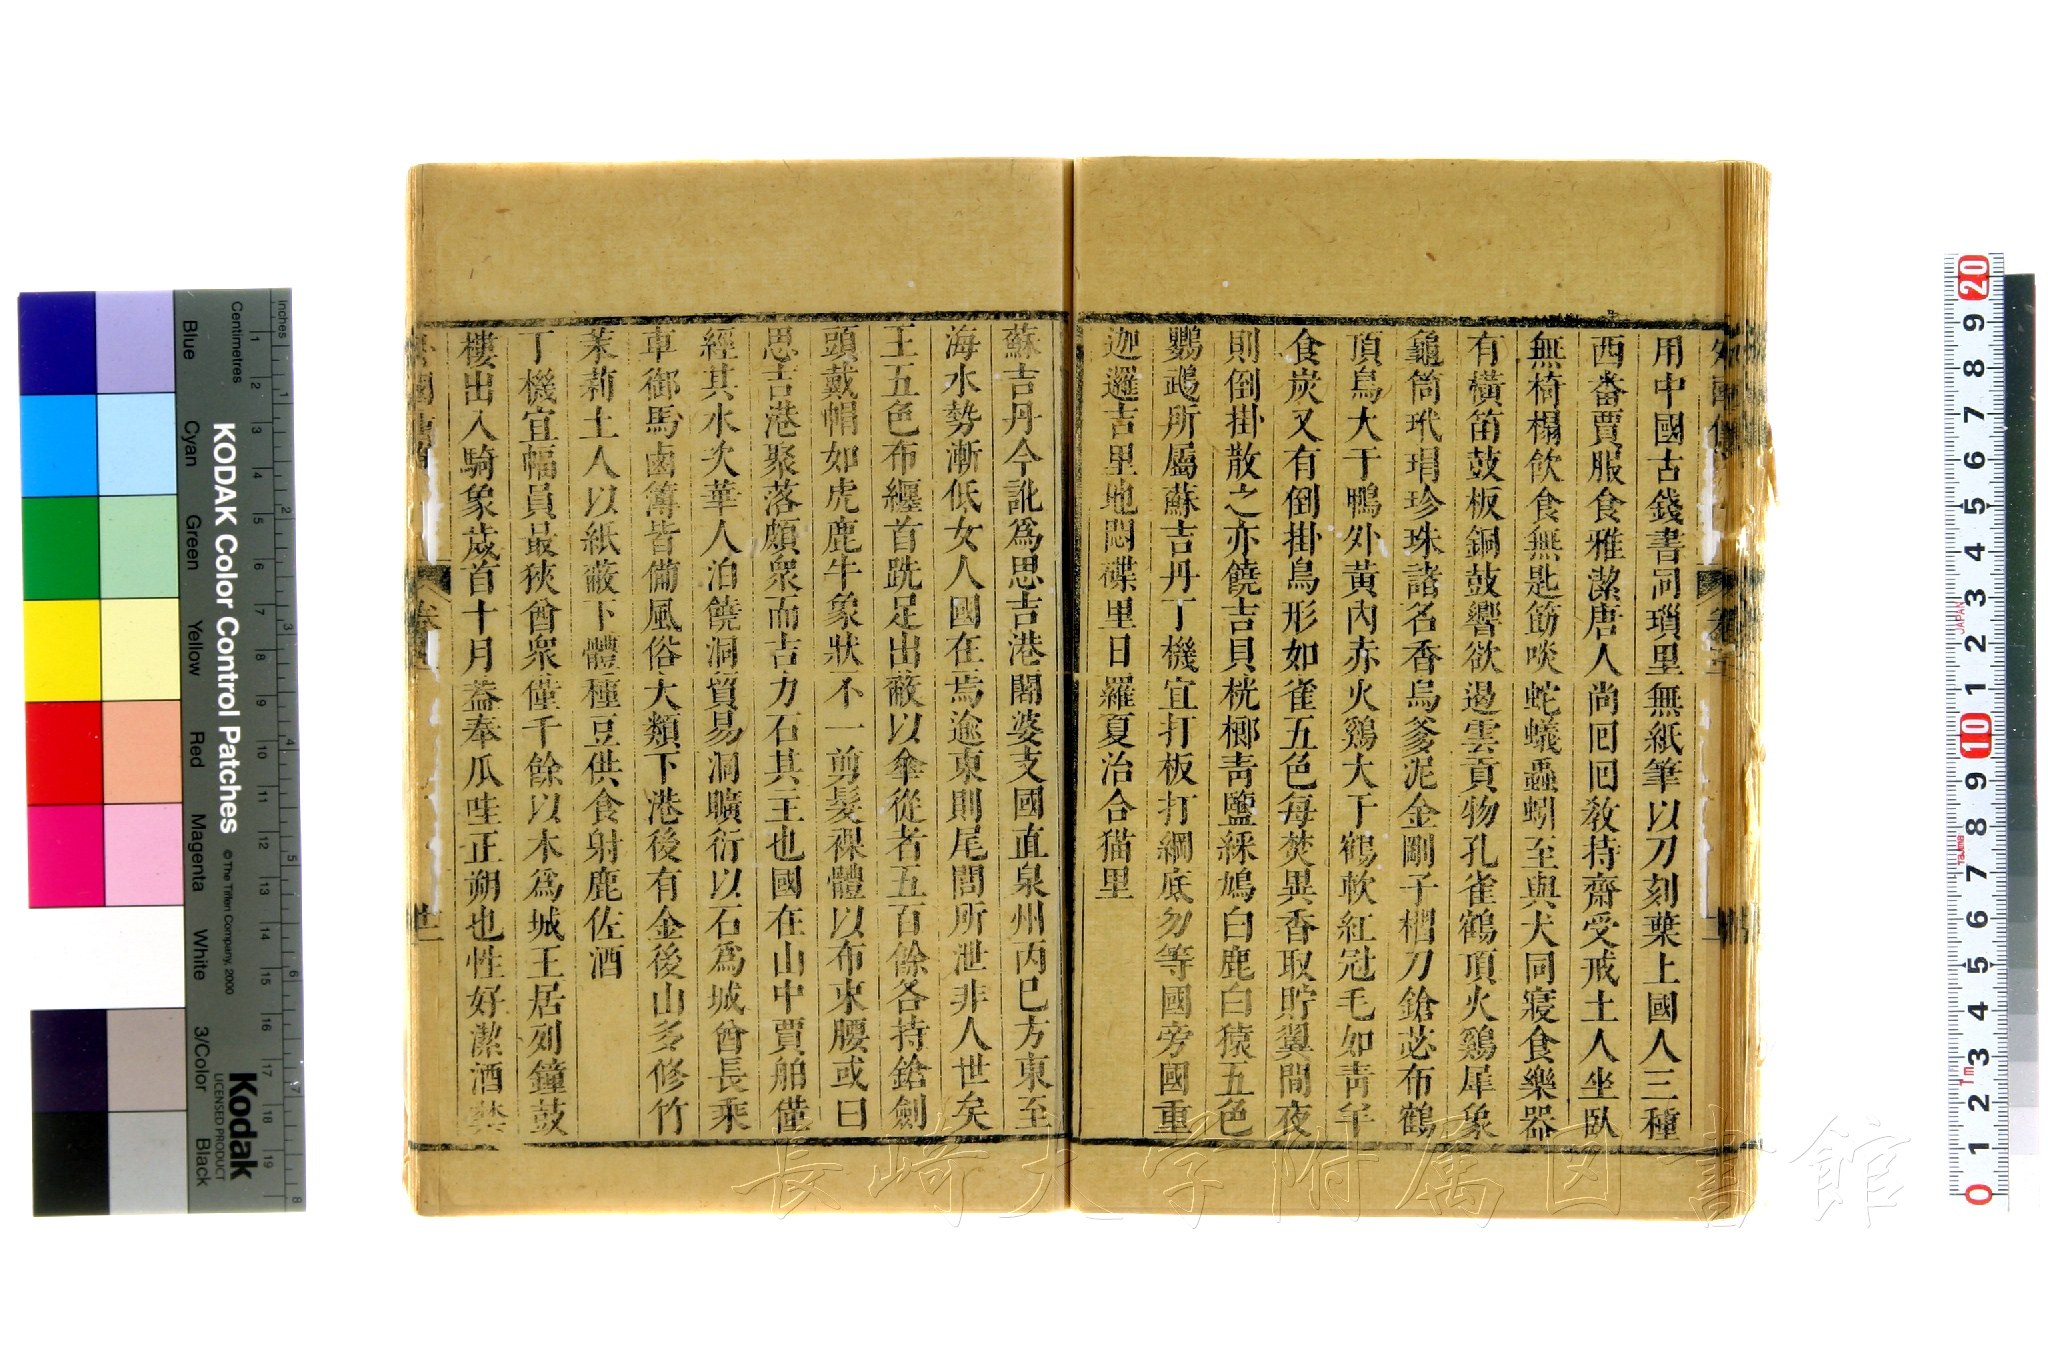 用中國古錢書祠瑣里無紙筆以刀刻葉上國人三種
西畨賈服食雅潔唐人尚囘囘敎持齋受戒土人坐臥
無椅榻飲食無匙筯啖蛇蟻蟲蚓至與犬同寢食樂器
有橫笛鼓板銅鼓響欲遏雲貢物孔雀鶴頂火鷄犀象
龜筒玳瑁珍珠諸名香烏爹泥金剛子櫚刀鎗苾布鶴
頂鳥大于鴨外黃內赤火鷄大于鶴軟紅冠毛如靑羊
食炭又有倒掛鳥形如雀五色每焚異香取貯翼閒夜
則倒掛散之亦饒吉貝桄榔靑鹽綵鳩白鹿白猿五色
鸚鵡所屬蘇吉丹丁機宜打板打綱底勿等國旁國重
迦邏吉里地悶碟里日羅夏治合猫里
蘇吉丹今訛爲思吉港闍婆支國直泉州丙巳方東至
海水勢漸低女人國在焉逾東則尾閭所泄非人世矣
王五色布纒首跣足出蔽以傘從者五百餘各持鎗劍
頭戴帽如虎鹿牛象狀不一剪髮裸體以布束腰或曰
思吉港聚落頗衆而吉力石其主也國在山中賈舶僅
經其水次華人泊饒洞貿易洞曠衍以石爲城酋長乘
車御馬鹵簿皆備風俗大類下港後有金後山多修竹
茉莉土人以紙蔽下體種豆供食射鹿佐酒
丁機宜幅員最狹酋衆僅千餘以木爲城王居列鐘鼓
樓出入騎象歲首十月葢奉瓜哇正朔也性好潔酒禁
卷五
世二
長崎大学附属図書館
KODAK Color Control Patches
© The Tiffen Company, 2000
Kodak
LICENSED PRODUCT
inches
Centimetres
Blue
Cyan
Green
Yellow
Red
Magenta
White
3/Color
Black
JAPAN